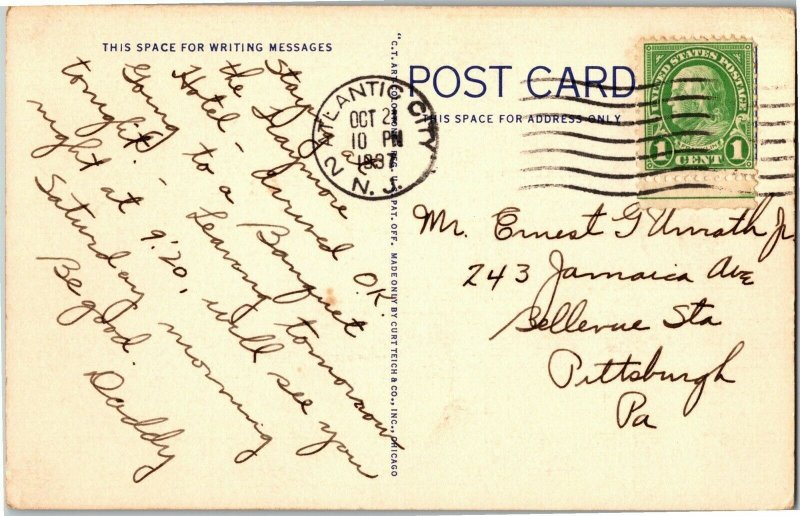 THIS SPACE FOR WRITING MESSAGES
Staying at
the Seaymore
Hotel - arrived O.K.
Going to a Banquet
tonight. Leaving tomorrow
night at 9:20, will see you
Saturday morning
Be good.
Daddy
"C.T. ART-COLORTONE" REG. U.S. PAT. OFF. MADE ONLY BY CURT TEICH & CO., INC., CHICAGO
ATLANTIC CITY
OCT 21
10 PM
1937
2 N. J.
POST CARD
THIS SPACE FOR ADDRESS ONLY
UNITED STATES POSTAGE
1 CENT 1
Mr. Ernest G Unrath Jr.
243 Jamaica Ave
Bellevue Sta
Pittsburgh
Pa